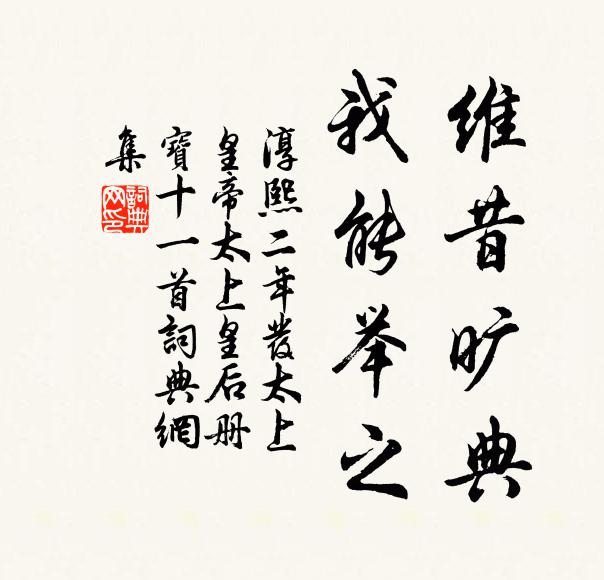 维昔旷典
我能举之
淳熙二年發太上
皇帝太上皇后册
寶十一首詞典網
集
詞典网印